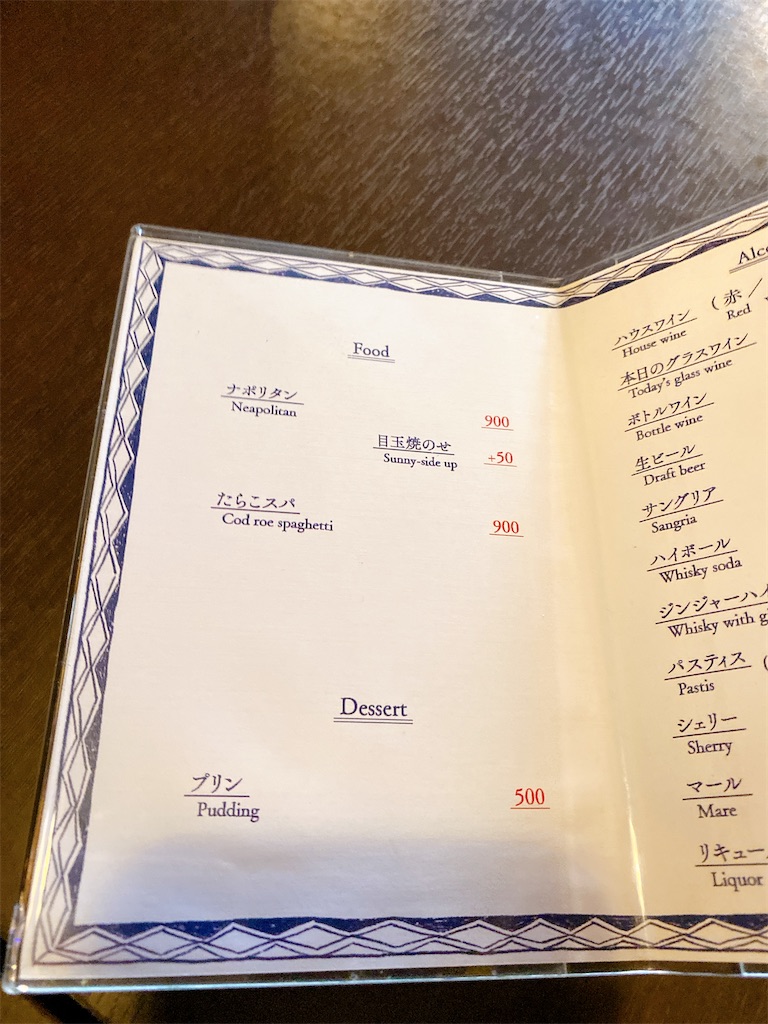 Food
ナポリタン
Neapolitan
900
目玉焼のせ
Sunny-side up
+50
たらこスパ
Cod roe spaghetti
900
Dessert
プリン
Pudding
500
ハウスワイン (赤／
House wine Red
本日のグラスワイン
Today's glass wine
ボトルワイン
Bottle wine
生ビール
Draft beer
サングリア
Sangria
ハイボール
Whisky soda
ジンジャーハイ
Whisky with
パスティス (
Pastis
シェリー
Sherry
マール
Mare
リキュー
Liquor